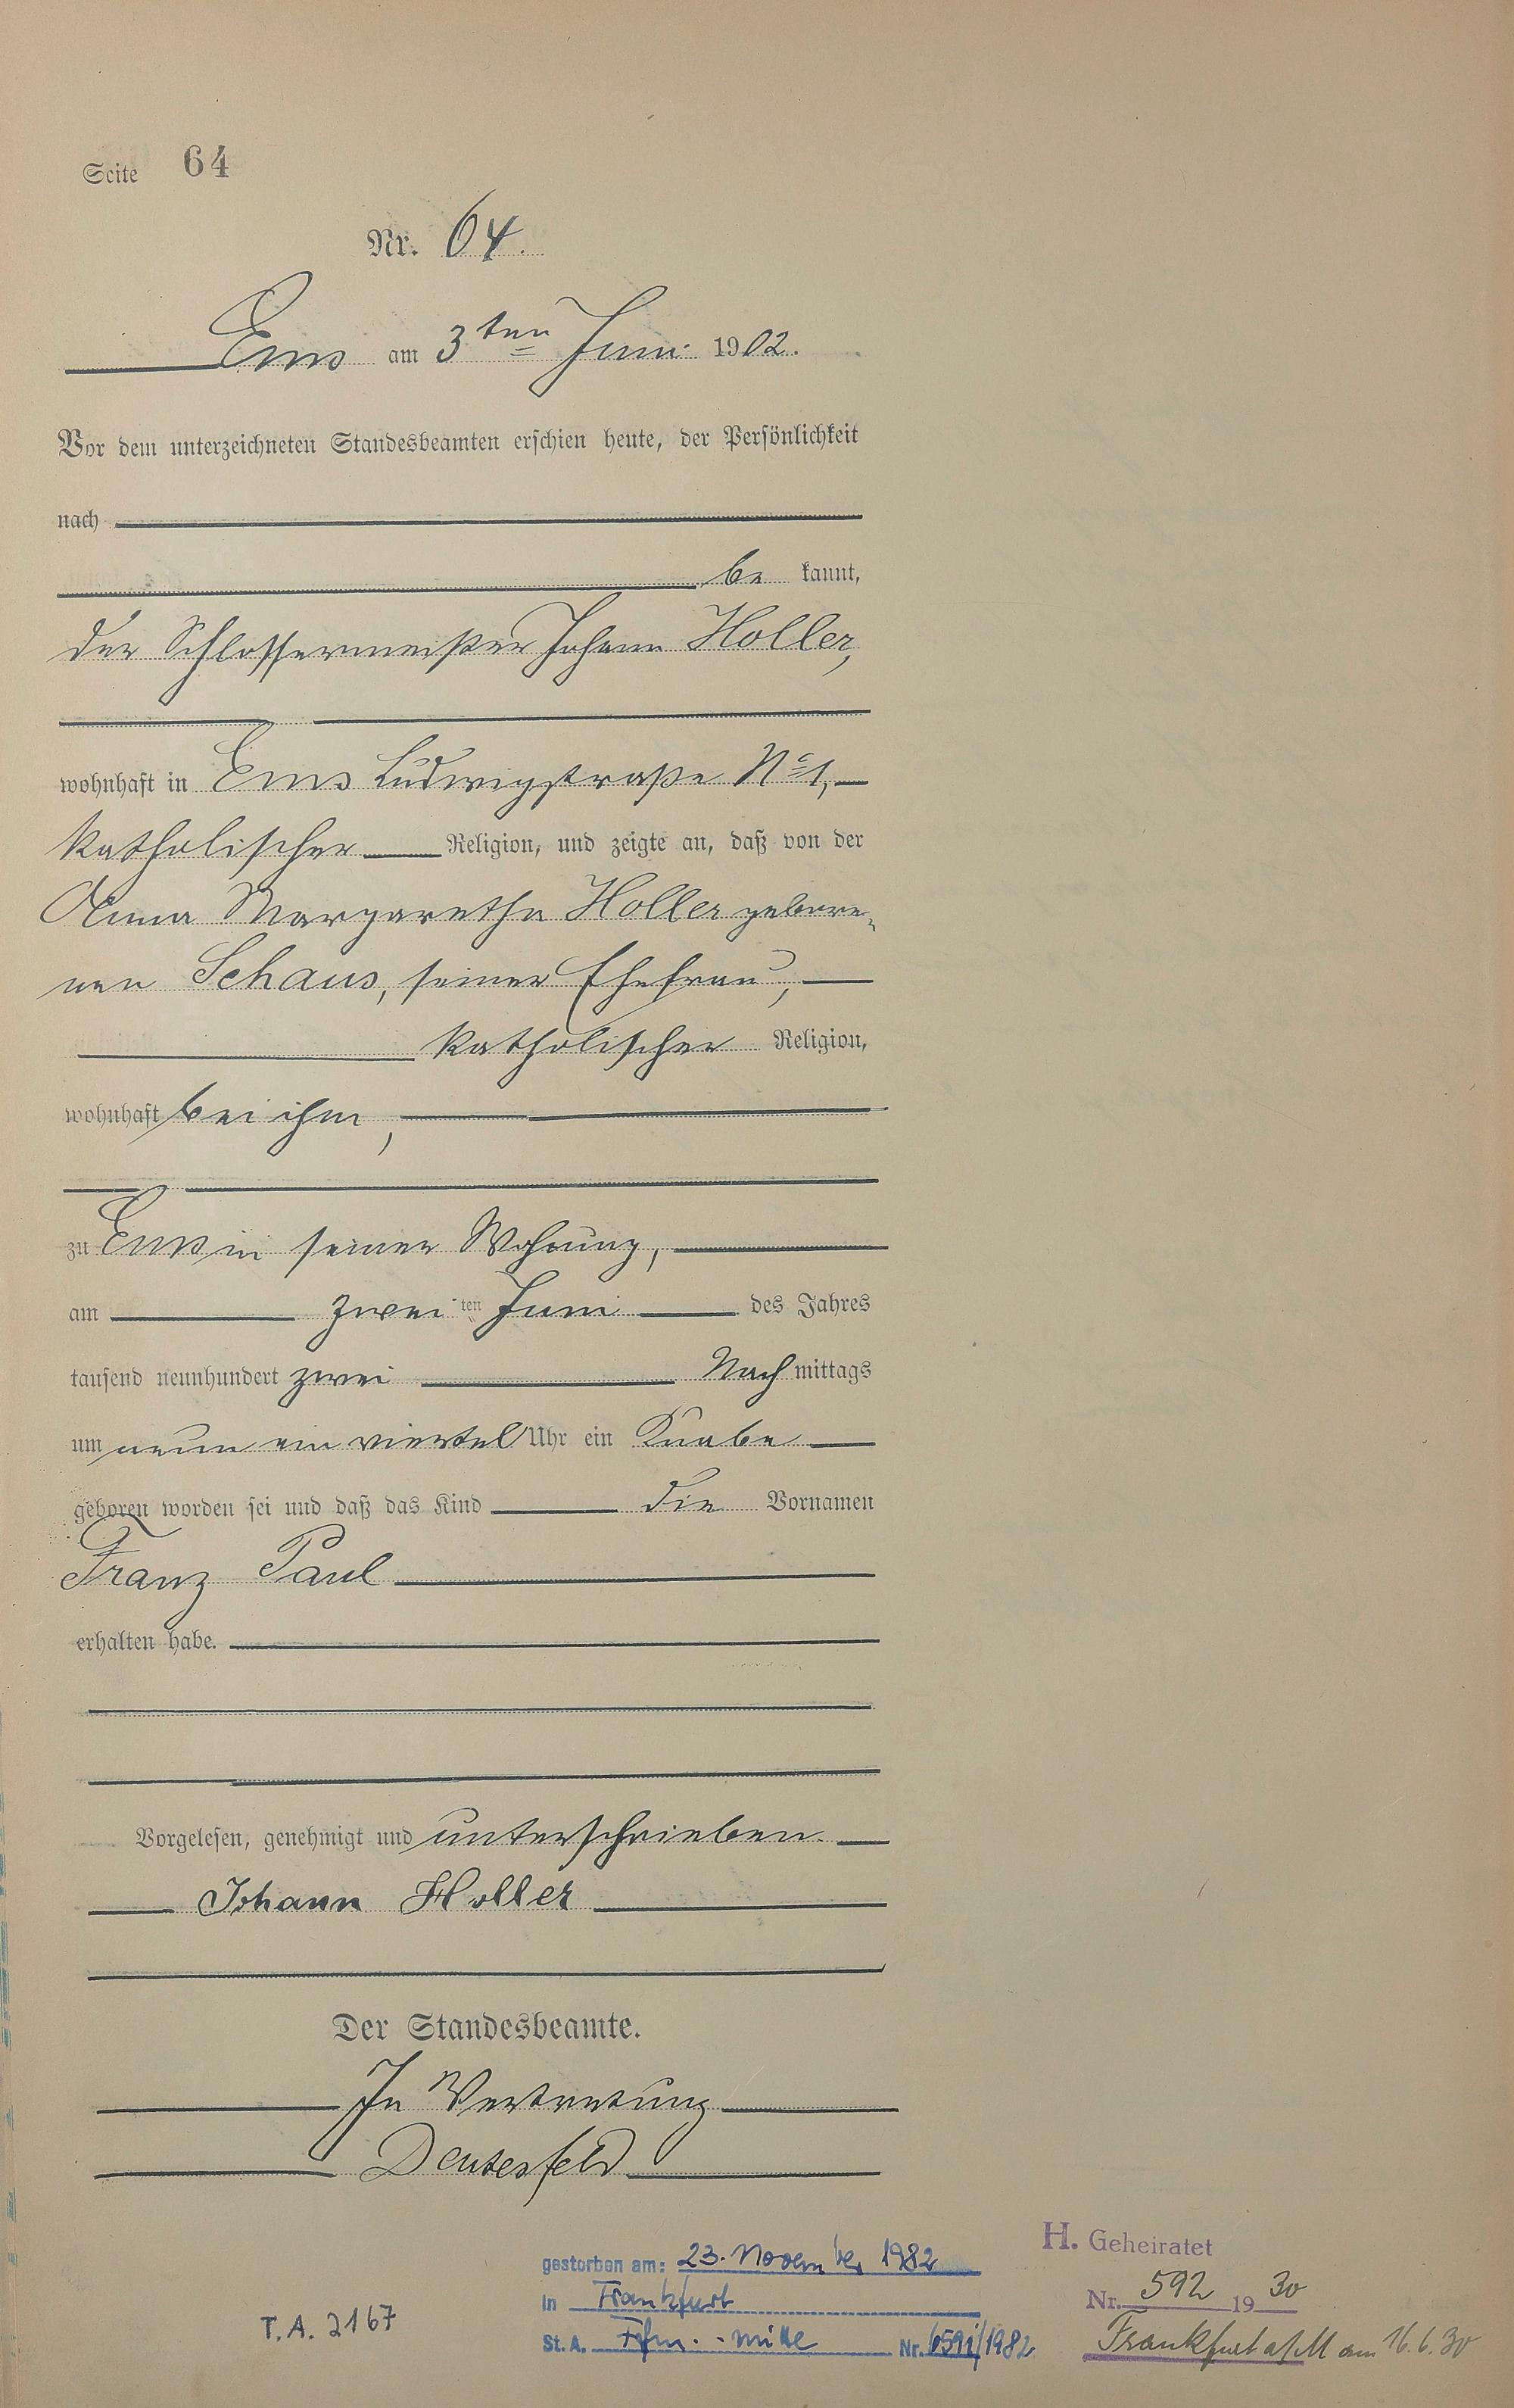 Seite 64
Nr. 64.
Ems am 3ten Juni 1902.
Vor dem unterzeichneten Standesbeamten erschien heute, der Persönlichkeit
nach
be kannt,
der Schlossermeister Johann Holler,
wohnhaft in Ems Ludwigstraße No 1,
katholischer Religion, und zeigte an, daß von der
Anna Margaretha Holler gebore-
nen Schaus, seiner Ehefrau,
katholischer Religion,
wohnhaft bei ihm,
zu Ems in seiner Wohnung,
am zwei ten Juni des Jahres
tausend neunhundert zwei Nach mittags
um neun ein viertel Uhr ein Knabe
geboren worden sei und daß das Kind die Vornamen
Franz Paul
erhalten habe.
Vorgelesen, genehmigt und unterschrieben.
Johann Holler
Der Standesbeamte.
In Vertretung
H. Geheiratet
gestorben am: 23. November 1982
Nr. 592 19 30
in Frankfurt
T.A. 2167
St. A. Ffm. - mitte Nr. /1982
Frankfurt a/M am 16.6.30